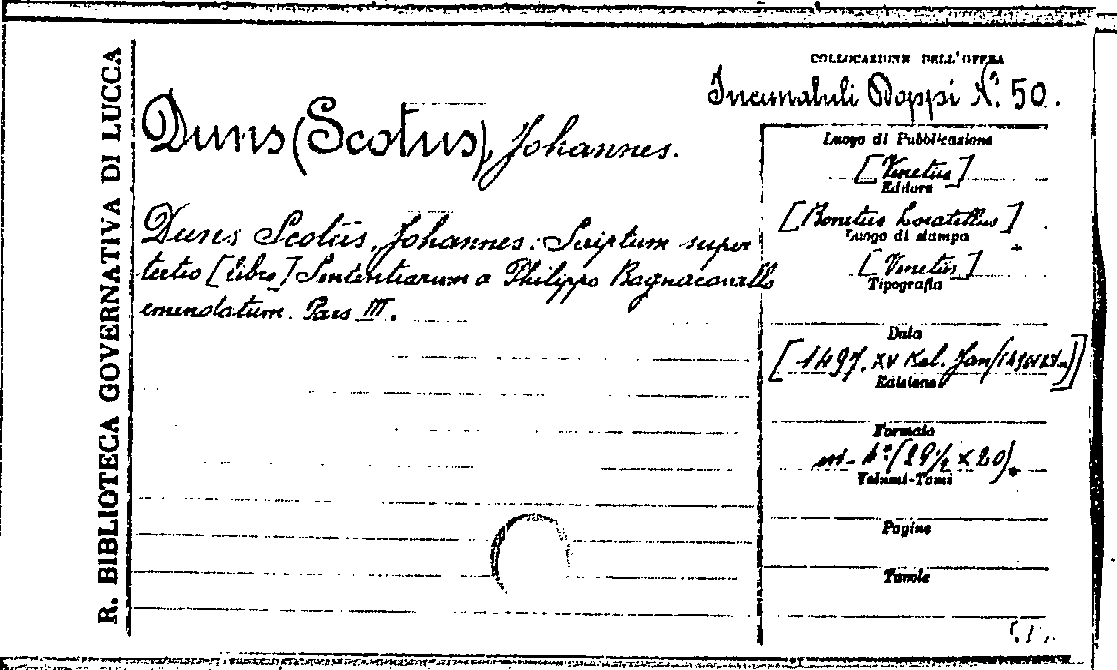 R. BIBLIOTECA GOVERNATIVA DI LUCCA
COLLOCAZIONE DELL'OPERA
Incunabuli Doppi N.° 50.
Duns (Scotus), Johannes.
Duns Scotus, Johannes. Scriptum super
tertio [libro] Sententiarum a Philippo Bagnacavallo
emendatum. Pars III.
Luogo di Pubblicazione
[Venetiis]
Editore
[Bonetus Locatellus]
Luogo di stampa
[Venetiis]
Tipografia
Data
[1497. XV Kal. Jan
Edizione
Formato
in-4° (29½ × 20).
Volumi-Tomi
Pagine
Tavole